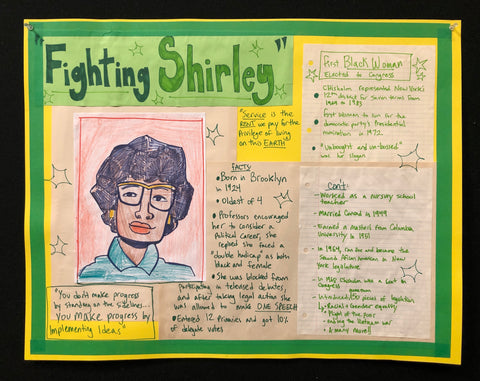 "Fighting Shirley"
"Service is the
RENT we pay for the
Privilege of living
on this EARTH"
FACTS:
• Born in Brooklyn
in 1924
• Oldest of 4
• Professors encouraged
her to consider a
Political career, she
replied she faced a
"double handicap" as both
black and female
• She was blocked from
participating in televised debates,
and after taking legal action she
was allowed to make ONE SPEECH
• Entered 12 Primaries and got 10%
of delegate votes
"You don't make progress
by standing on the sidelines...
You make progress by
Implementing Ideas"
First Black Woman
Elected to Congress
Chisholm represented New York's
12th district for seven terms from
1969 to 1983
First woman to run for the
democratic party's Presidential
nomination in 1972.
"Unbought and un-bossed"
was her slogan
Con't:
- Worked as a nursery school
teacher
- Married Conrad in 1949
- Earned a masters from Columbia
University in 1951
- In 1964, ran for and became the
Second African American in New
York legislature
- In 1968 Chisholm won a seat in
Congress
- Introduced 50 pieces of legislation
Racial & Gender equality
Plight of the poor
- ending the Vietnam war
& many more!!